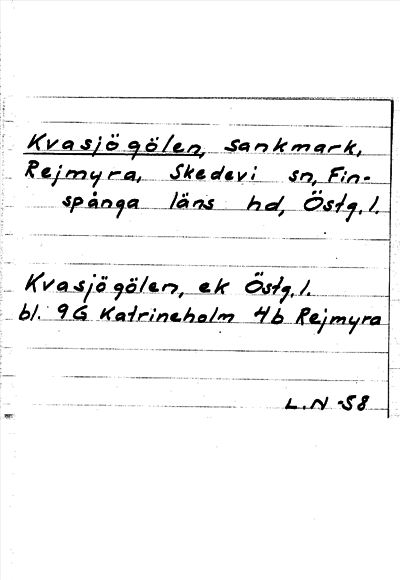 Kvasjögölen, sankmark,
Rejmyra, Skedevi sn, Fin-
spånga läns hd, Östg.l.
Kvasjögölen, ek Östg.l.
bl. 9G Katrineholm 4b Rejmyra
L.N -58